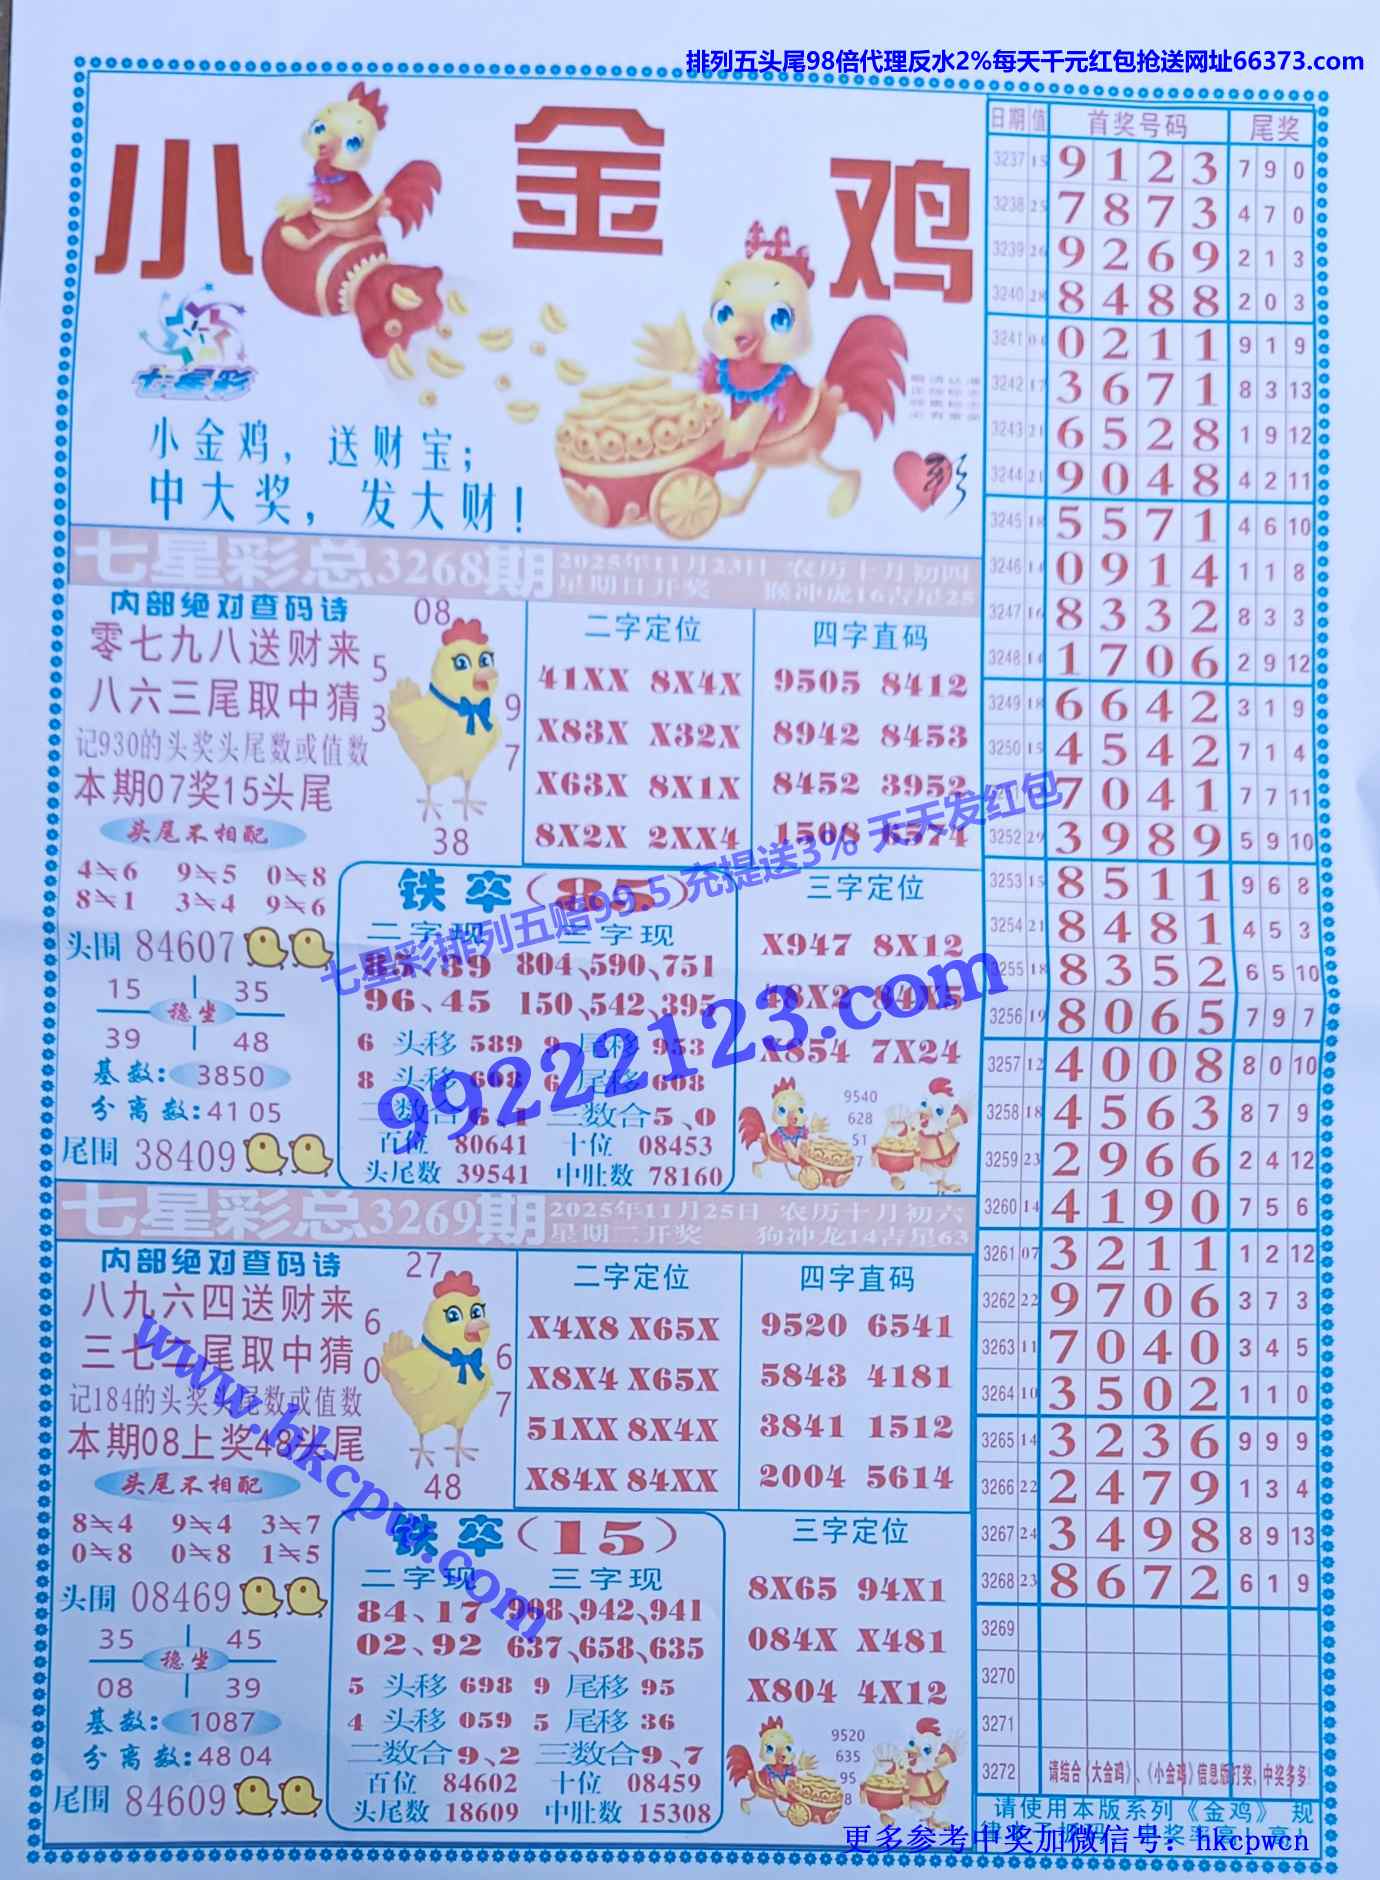 排列五头尾98倍代理反水2%每天千元红包抢送网址66373.com
小金鸡
七星彩
小金鸡，送财宝；
中大奖，发大财！
彩
七星彩总3268期
2025年11月23日 农历十月初四
星期日开奖 猴冲虎16吉星25
内部绝对查码诗
零七九八送财来
八六三尾取中猜
记930的头奖头尾数或值数
本期07奖15头尾
08
5
3
9
7
38
头尾不相配
4≒6 9≒5 0≒8
8≒1 3≒4 9≒6
头围 84607
15 35
稳坐
39 48
基数: 3850
分离数: 41 05
尾围 38409
二字定位
41XX 8X4X
X83X X32X
X63X 8X1X
8X2X 2XX4
四字直码
9505 8412
8942 8453
8452 3952
1508 6574
铁卒(85)
二字现 三字现
85、89 804、590、751
96、45 150、542、395
6 头移 589 9 尾移 953
8 头移 608 6 尾移 608
二数合 6、1 三数合 5、0
百位 80641 十位 08453
头尾数 39541 中肚数 78160
三字定位
X947 8X12
48X2 84X5
X854 7X24
9540
628
51
7
七星彩排列五赔99.5 充提送3% 天天发红包
99222123.com
七星彩总3269期
2025年11月25日 农历十月初六
星期二开奖 狗冲龙14吉星63
内部绝对查码诗
八九六四送财来
三七二尾取中猜
记184的头奖头尾数或值数
本期08上奖48头尾
27
6
0
6
7
48
头尾不相配
8≒4 9≒4 3≒7
0≒8 0≒8 1≒5
头围 08469
35 45
稳坐
08 39
基数: 1087
分离数: 48 04
尾围 84609
二字定位
X4X8 X65X
X8X4 X65X
51XX 8X4X
X84X 84XX
四字直码
9520 6541
5843 4181
3841 1512
2004 5614
铁卒(15)
二字现 三字现
84、17 998、942、941
02、92 637、658、635
5 头移 698 9 尾移 95
4 头移 059 5 尾移 36
二数合 9、2 三数合 9、7
百位 84602 十位 08459
头尾数 18609 中肚数 15308
三字定位
8X65 94X1
084X X481
X804 4X12
9520
635
95
8
www.hkcpw.com
日期 值 首奖号码 尾奖
3237 15 9 1 2 3 7 9 0
3238 25 7 8 7 3 4 7 0
3239 26 9 2 6 9 2 1 3
3240 28 8 4 8 8 2 0 3
3241 04 0 2 1 1 9 1 9
3242 17 3 6 7 1 8 3 13
3243 21 6 5 2 8 1 9 12
3244 21 9 0 4 8 4 2 11
3245 18 5 5 7 1 4 6 10
3246 14 0 9 1 4 1 1 8
3247 16 8 3 3 2 8 3 3
3248 14 1 7 0 6 2 9 12
3249 18 6 6 4 2 3 1 9
3250 15 4 5 4 2 7 1 4
7 0 4 1 7 7 11
3252 29 3 9 8 9 5 9 10
3253 15 8 5 1 1 9 6 8
3254 21 8 4 8 1 4 5 3
3255 18 8 3 5 2 6 5 10
3256 19 8 0 6 5 7 9 7
3257 12 4 0 0 8 8 0 10
3258 18 4 5 6 3 8 7 9
3259 23 2 9 6 6 2 4 12
3260 14 4 1 9 0 7 5 6
3261 07 3 2 1 1 1 2 12
3262 22 9 7 0 6 3 7 3
3263 11 7 0 4 0 3 4 5
3264 10 3 5 0 2 1 1 0
3265 14 3 2 3 6 9 9 9
3266 22 2 4 7 9 1 3 4
3267 24 3 4 9 8 8 9 13
3268 23 8 6 7 2 6 1 9
3269
3270
3271
3272 请结合《大金鸡》、《小金鸡》信息版打奖，中奖多多！
请使用本版系列《金鸡》规
更多参考中奖加微信号：hkcpwcn